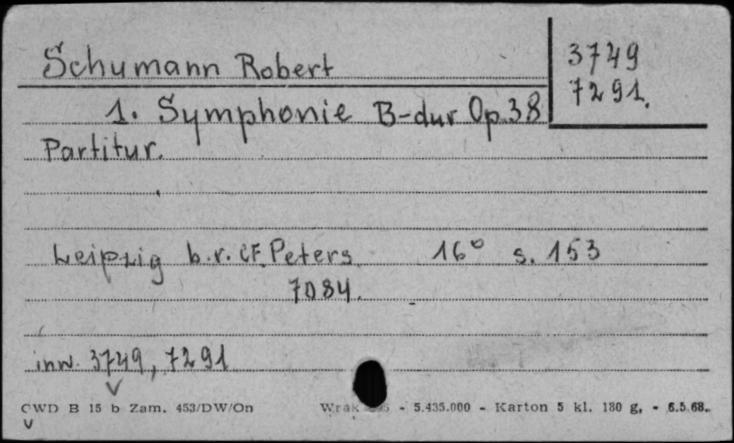 Schumann Robert
3749
7291.
1. Symphonie B-dur Op.38
Partitur.
Leipzig b.r. CF. Peters 16° s. 153
7084.
inw. 3749, 7291
CWD B 15 b Zam. 453/DW/On - 5.435.000 - Karton 5 kl. 180 g. - 6.5.68.